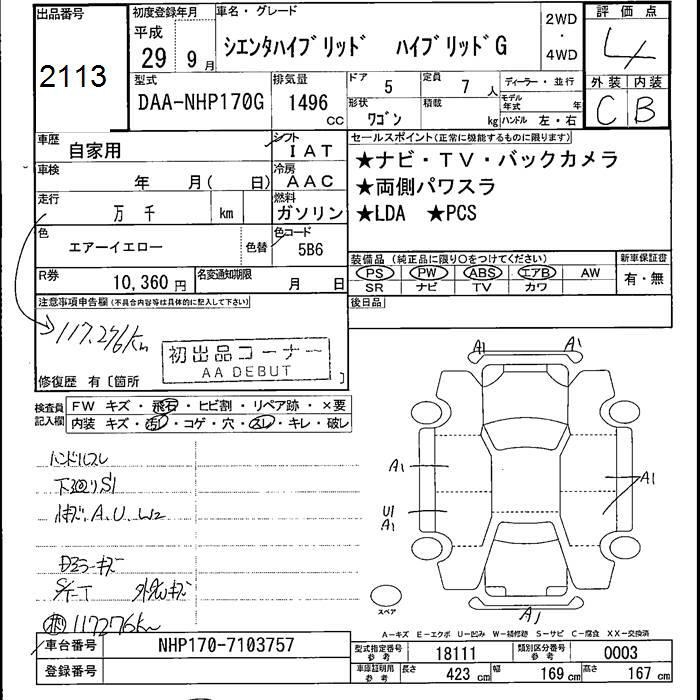 出品番号
2113
初度登録年月
平成
29年9月
車名・グレード
シエンタハイブリッド ハイブリッドG
2WD
・
4WD
評価点
4
外装 内装
C B
型式
DAA-NHP170G
排気量
1496
CC
ドア
5
定員
7人
形状
ワゴン
積載
kg
ディーラー・並行
モデル年式
年
ハンドル 左・右
車歴
自家用
シフト
IAT
車検
年 月( 日)
冷房
AAC
走行
万 千 km
燃料
ガソリン
色
エアーイエロー
色替
色コード
5B6
R券
10,360円
名変通知期限
月 日
セールスポイント(正常に機能するものに限ります)
★ナビ・TV・バックカメラ
★両側パワスラ
★LDA ★PCS
装備品 (純正品に限り○をつけてください)
PS PW ABS エアB AW
SR ナビ TV カワ
新車保証書
有・無
後日品
注意事項申告欄(不具合内容等は具体的に記入して下さい)
117,276km
初出品コーナー
AA DEBUT
修復歴 有〔箇所 〕
検査員記入欄
FW キズ・飛石・ヒビ割・リペア跡・×要
内装 キズ・汚レ・コゲ・穴・スレ・キレ・破レ
ハンドルスレ
下回りS1
A,U,W2
Dミラーキズ
117276km
A1 A1
A1
A1
U1
A1
A1
スペア
A-キズ E-エクボ U-凹み W-補修跡 S-サビ C-腐食 XX-交換済
車台番号
NHP170-7103757
登録番号
型式指定番号
参考
18111
類別区分番号
参考
0003
車庫証明用
参考
長さ
423 cm
幅
169 cm
高さ
167 cm